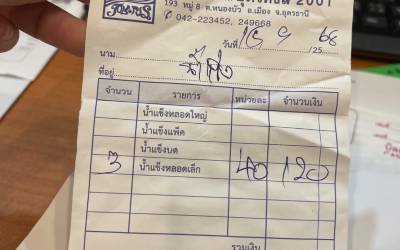 2001
193 หมู่ 8 ต.หนองบัว อ.เมือง จ.อุดรธานี
042-223452, 249668
วันที่ /25 68
นาม
ที่อยู่
จำนวน รายการ หน่วยละ จำนวนเงิน
น้ำแข็งหลอดใหญ่
น้ำแข็งแพ็ค
น้ำแข็งบด
3 น้ำแข็งหลอดเล็ก 40 120
รวมเงิน